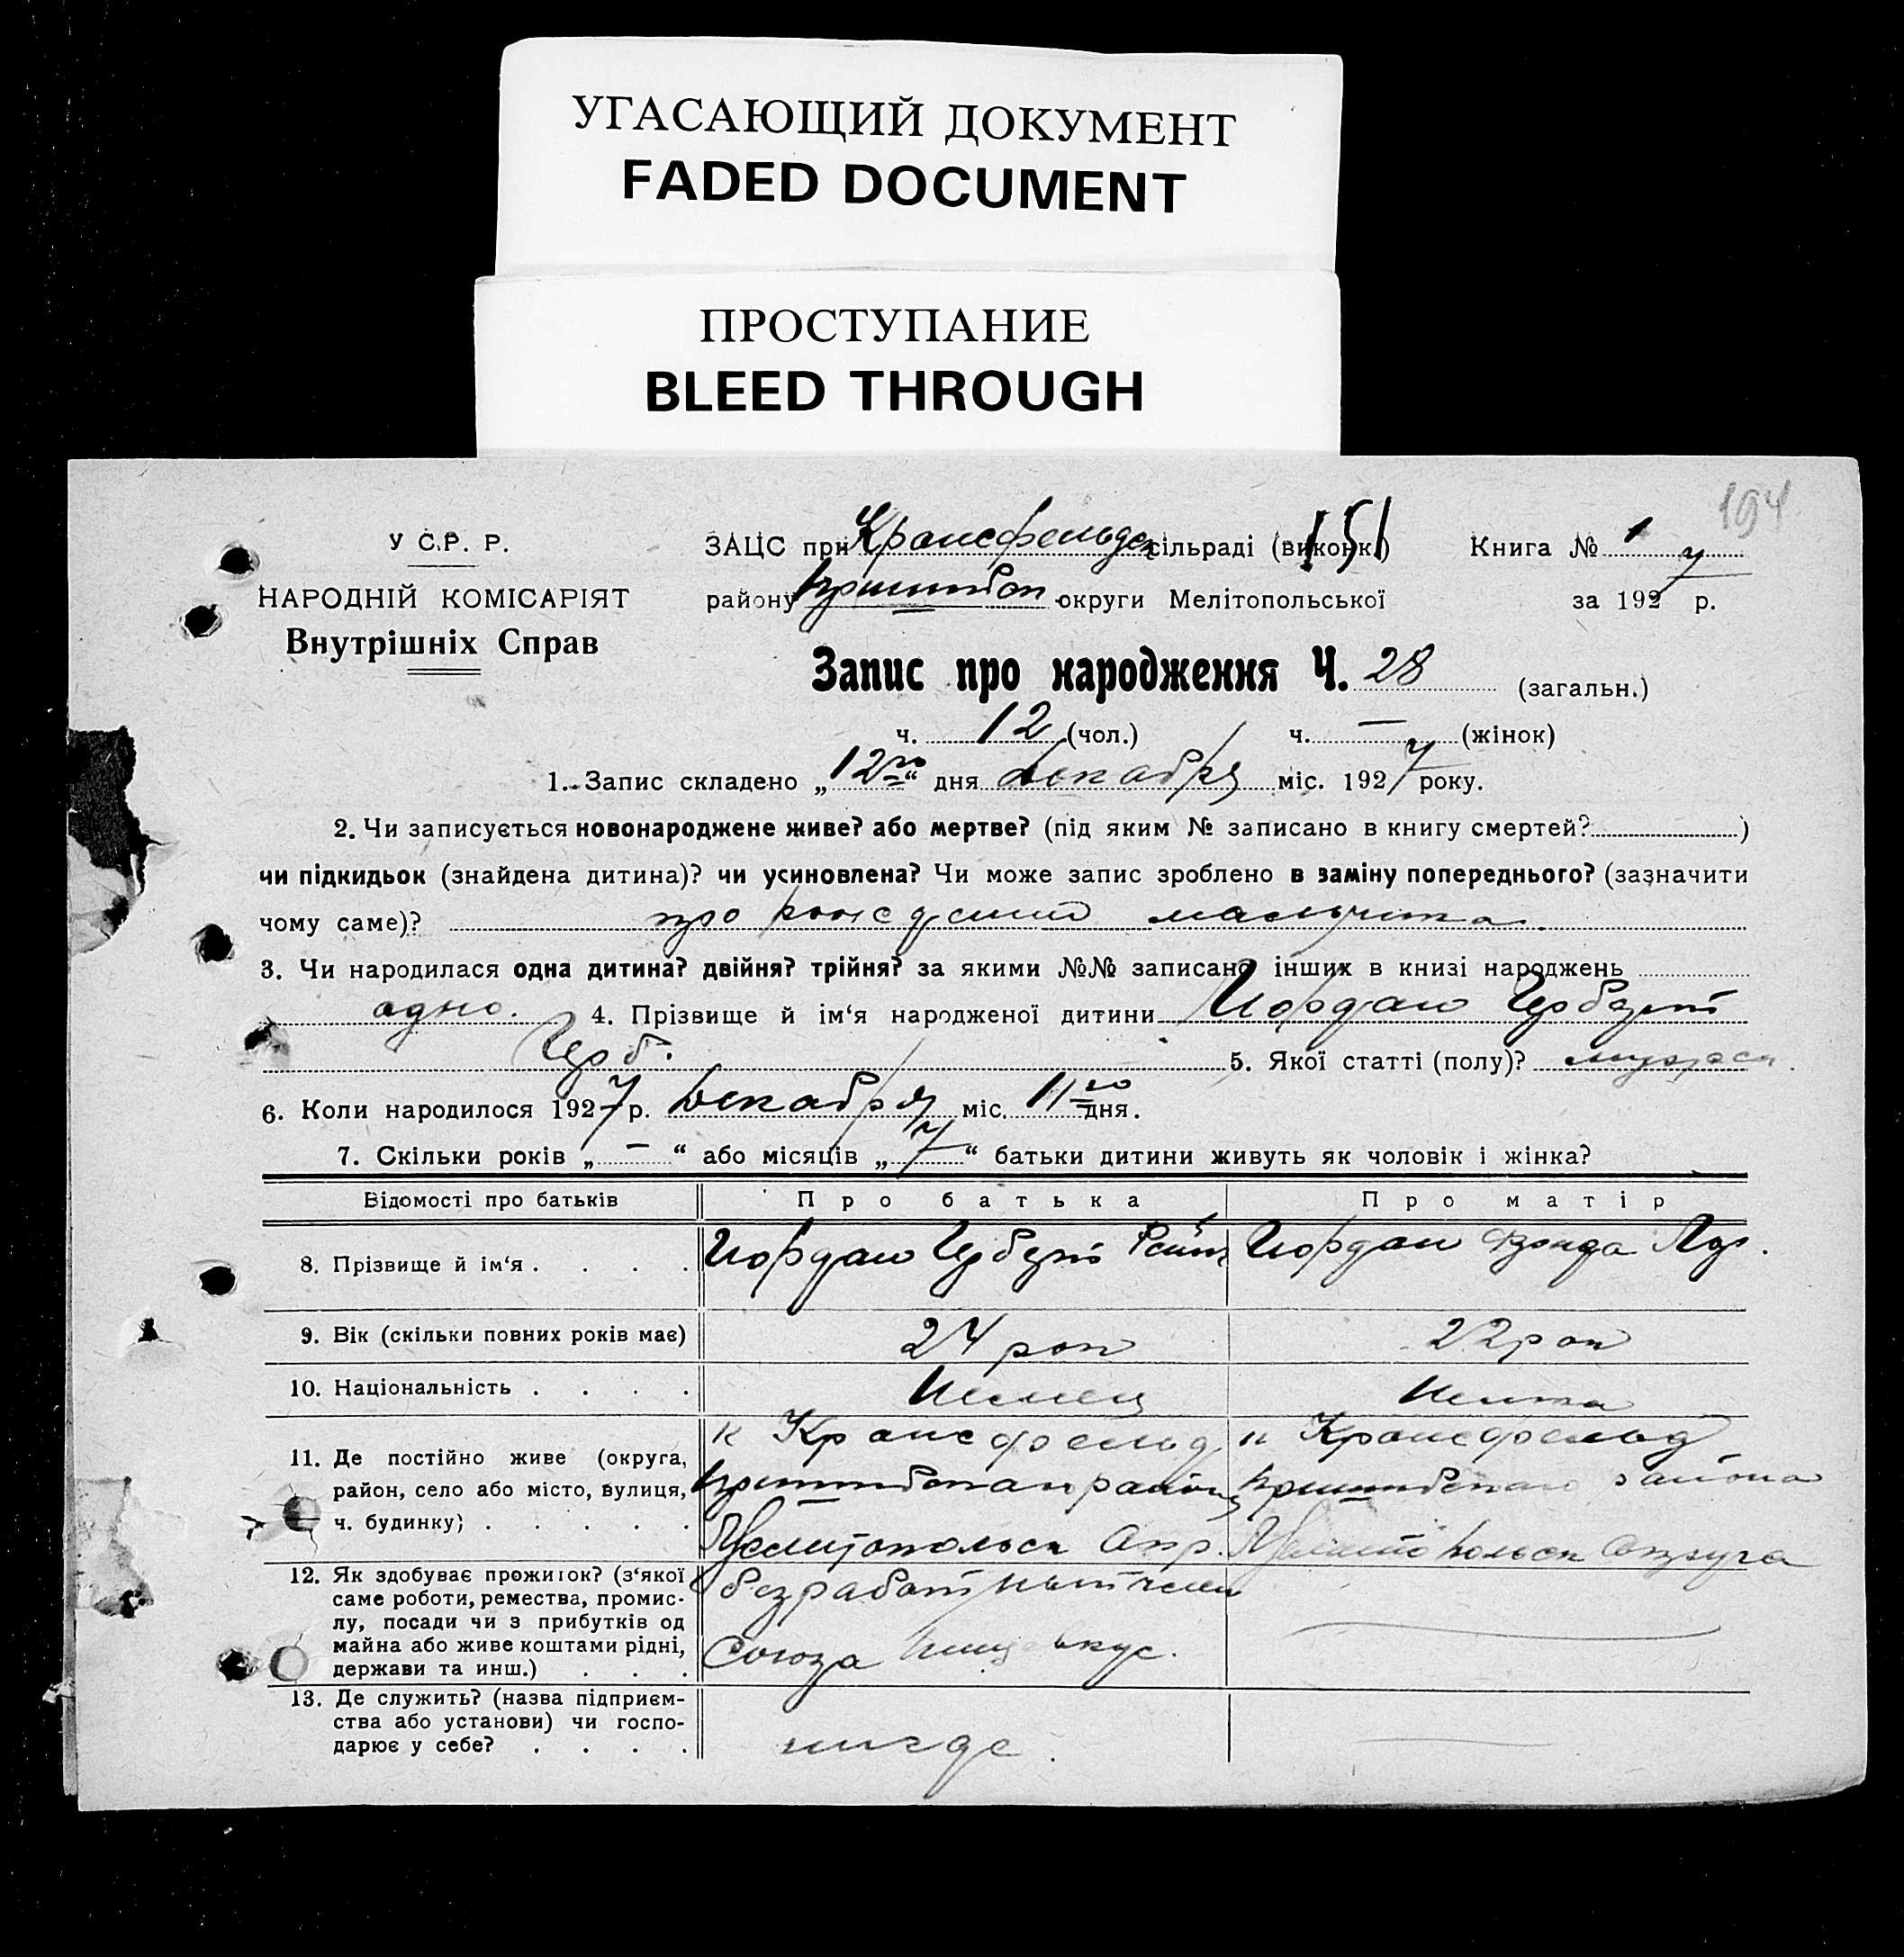 УГАСАЮЩИЙ ДОКУМЕНТ
FADED DOCUMENT
ПРОСТУПАНИЕ
BLEED THROUGH
194
У С.Р. Р.
НАРОДНІЙ КОМІСАРІЯТ
Внутрішніх Справ
ЗАЦС при Кронсфельдск сільраді (виконк.) 151 Книга № 1
району Пришибск округи Мелітопольської за 1927 р.
Запис про народження Ч. 28 (загальн.)
ч. 12 (чол.) ч. — (жінок)
1. Запис складено „12го“ дня Декабря міс. 1927 року.
2. Чи записується новонароджене живе? або мертве? (під яким № записано в книгу смертей? )
чи підкидьок (знайдена дитина)? чи усиновлена? Чи може запис зроблено в заміну попереднього? (зазначити
чому саме)? про мальчика
3. Чи народилася одна дитина? двійня? трійня? за якими №№ записано інших в книзі народжень
одно. 4. Прізвище й ім‘я народженої дитини Иордан Герберт
Герб. 5. Якої статті (полу)?
6. Коли народилося 1927 р. Декабря міс. 11го дня.
7. Скільки років „—“ або місяців „7“ батьки дитини живуть як чоловік і жінка?
Відомості про батьків Про батька Про матір
8. Прізвище й ім‘я . . . . Иордан Герберт Иордан
9. Вік (скільки повних років має) 24 рок 22 рок
10. Національність . . . . Немец Немка
11. Де постійно живе (округа, район, село або місто, вулиця, ч. будинку) . . . . .
к Кронсфельд
Пришибского района
Мелитопольск Окр.
к Кронсфельд
Пришибского района
Мелитопольск Округа
12. Як здобуває прожиток? (з‘якої
саме роботи, ремества, промис-
лу, посади чи з прибутків од
майна або живе коштами рідні,
держави та инш.) . . .
безработный член
Союза
13. Де служить? (назва підприєм-
ства або установи) чи госпо-
дарює у себе? . . . .
нигде.